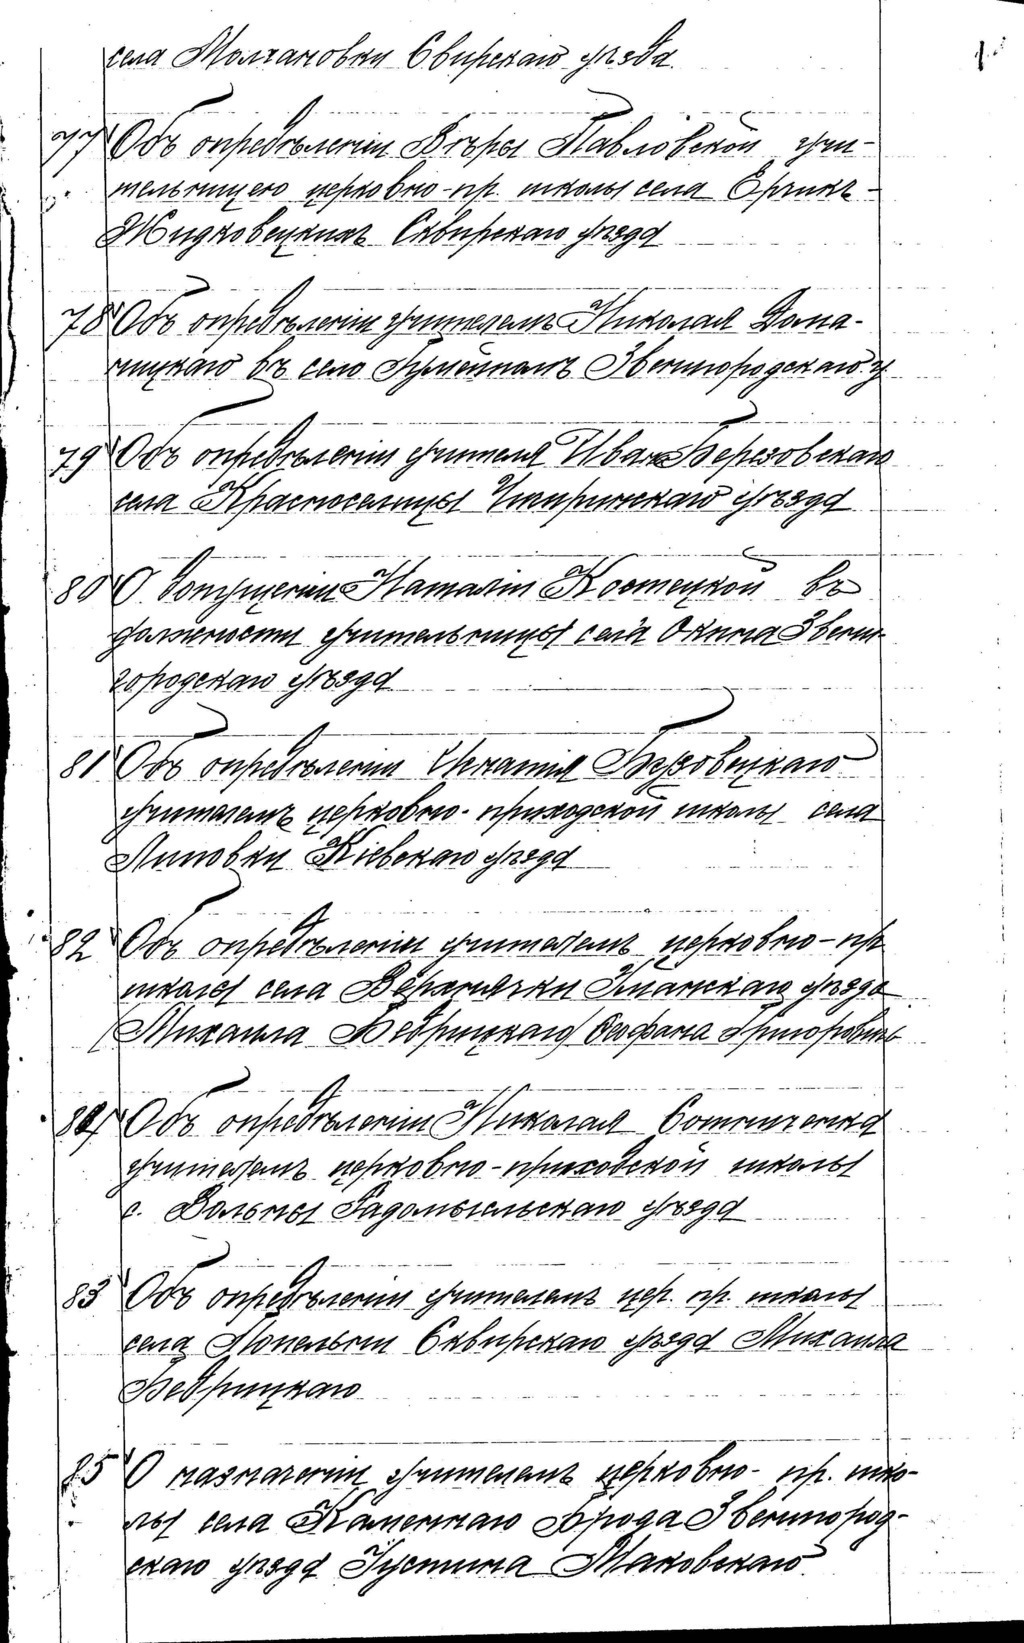 села Молчановки Сквирскаго уѣзда
77 Объ опредѣленіи Вѣры Павловской учи-
тельницею церковно-пр. школы села Ерчикъ-
Жидковецкихъ Сквирскаго уѣзда
78 Объ опредѣленіи учителемъ Николая Дома-
ницкаго въ село Звенигородскаго у
79 Объ опредѣленіи учителя Ивана Березовскаго
села Красноселицы Чигиринскаго уѣзда
80 О допущеніи Наталіи Костецкой въ
должности учительницы села Окнина Звени-
городскаго уѣзда
81 Объ опредѣленіи Игнатія Бузовецкаго
учителемъ церковно-приходской школы села
Липовки Кіевскаго уѣзда
82 Объ опредѣленіи учителемъ церковно-пр
школы села Верхнячки Уманскаго уѣзда
(Михаила Бедрицкаго) Феофана Григоровича
84 Объ опредѣленіи Николая Сотниченка
учителемъ церковно-приходской школы
с. Вольны Радомысльскаго уѣзда
83 Объ опредѣленіи учителемъ цер. пр. школы
села Попельни Сквирскаго уѣзда Михаила
Бедрицкаго
85 О назначеніи учителемъ церковно-пр. шко-
лы села Каменнаго Брода Звенигород-
скаго уѣзда Іустина Маковскаго